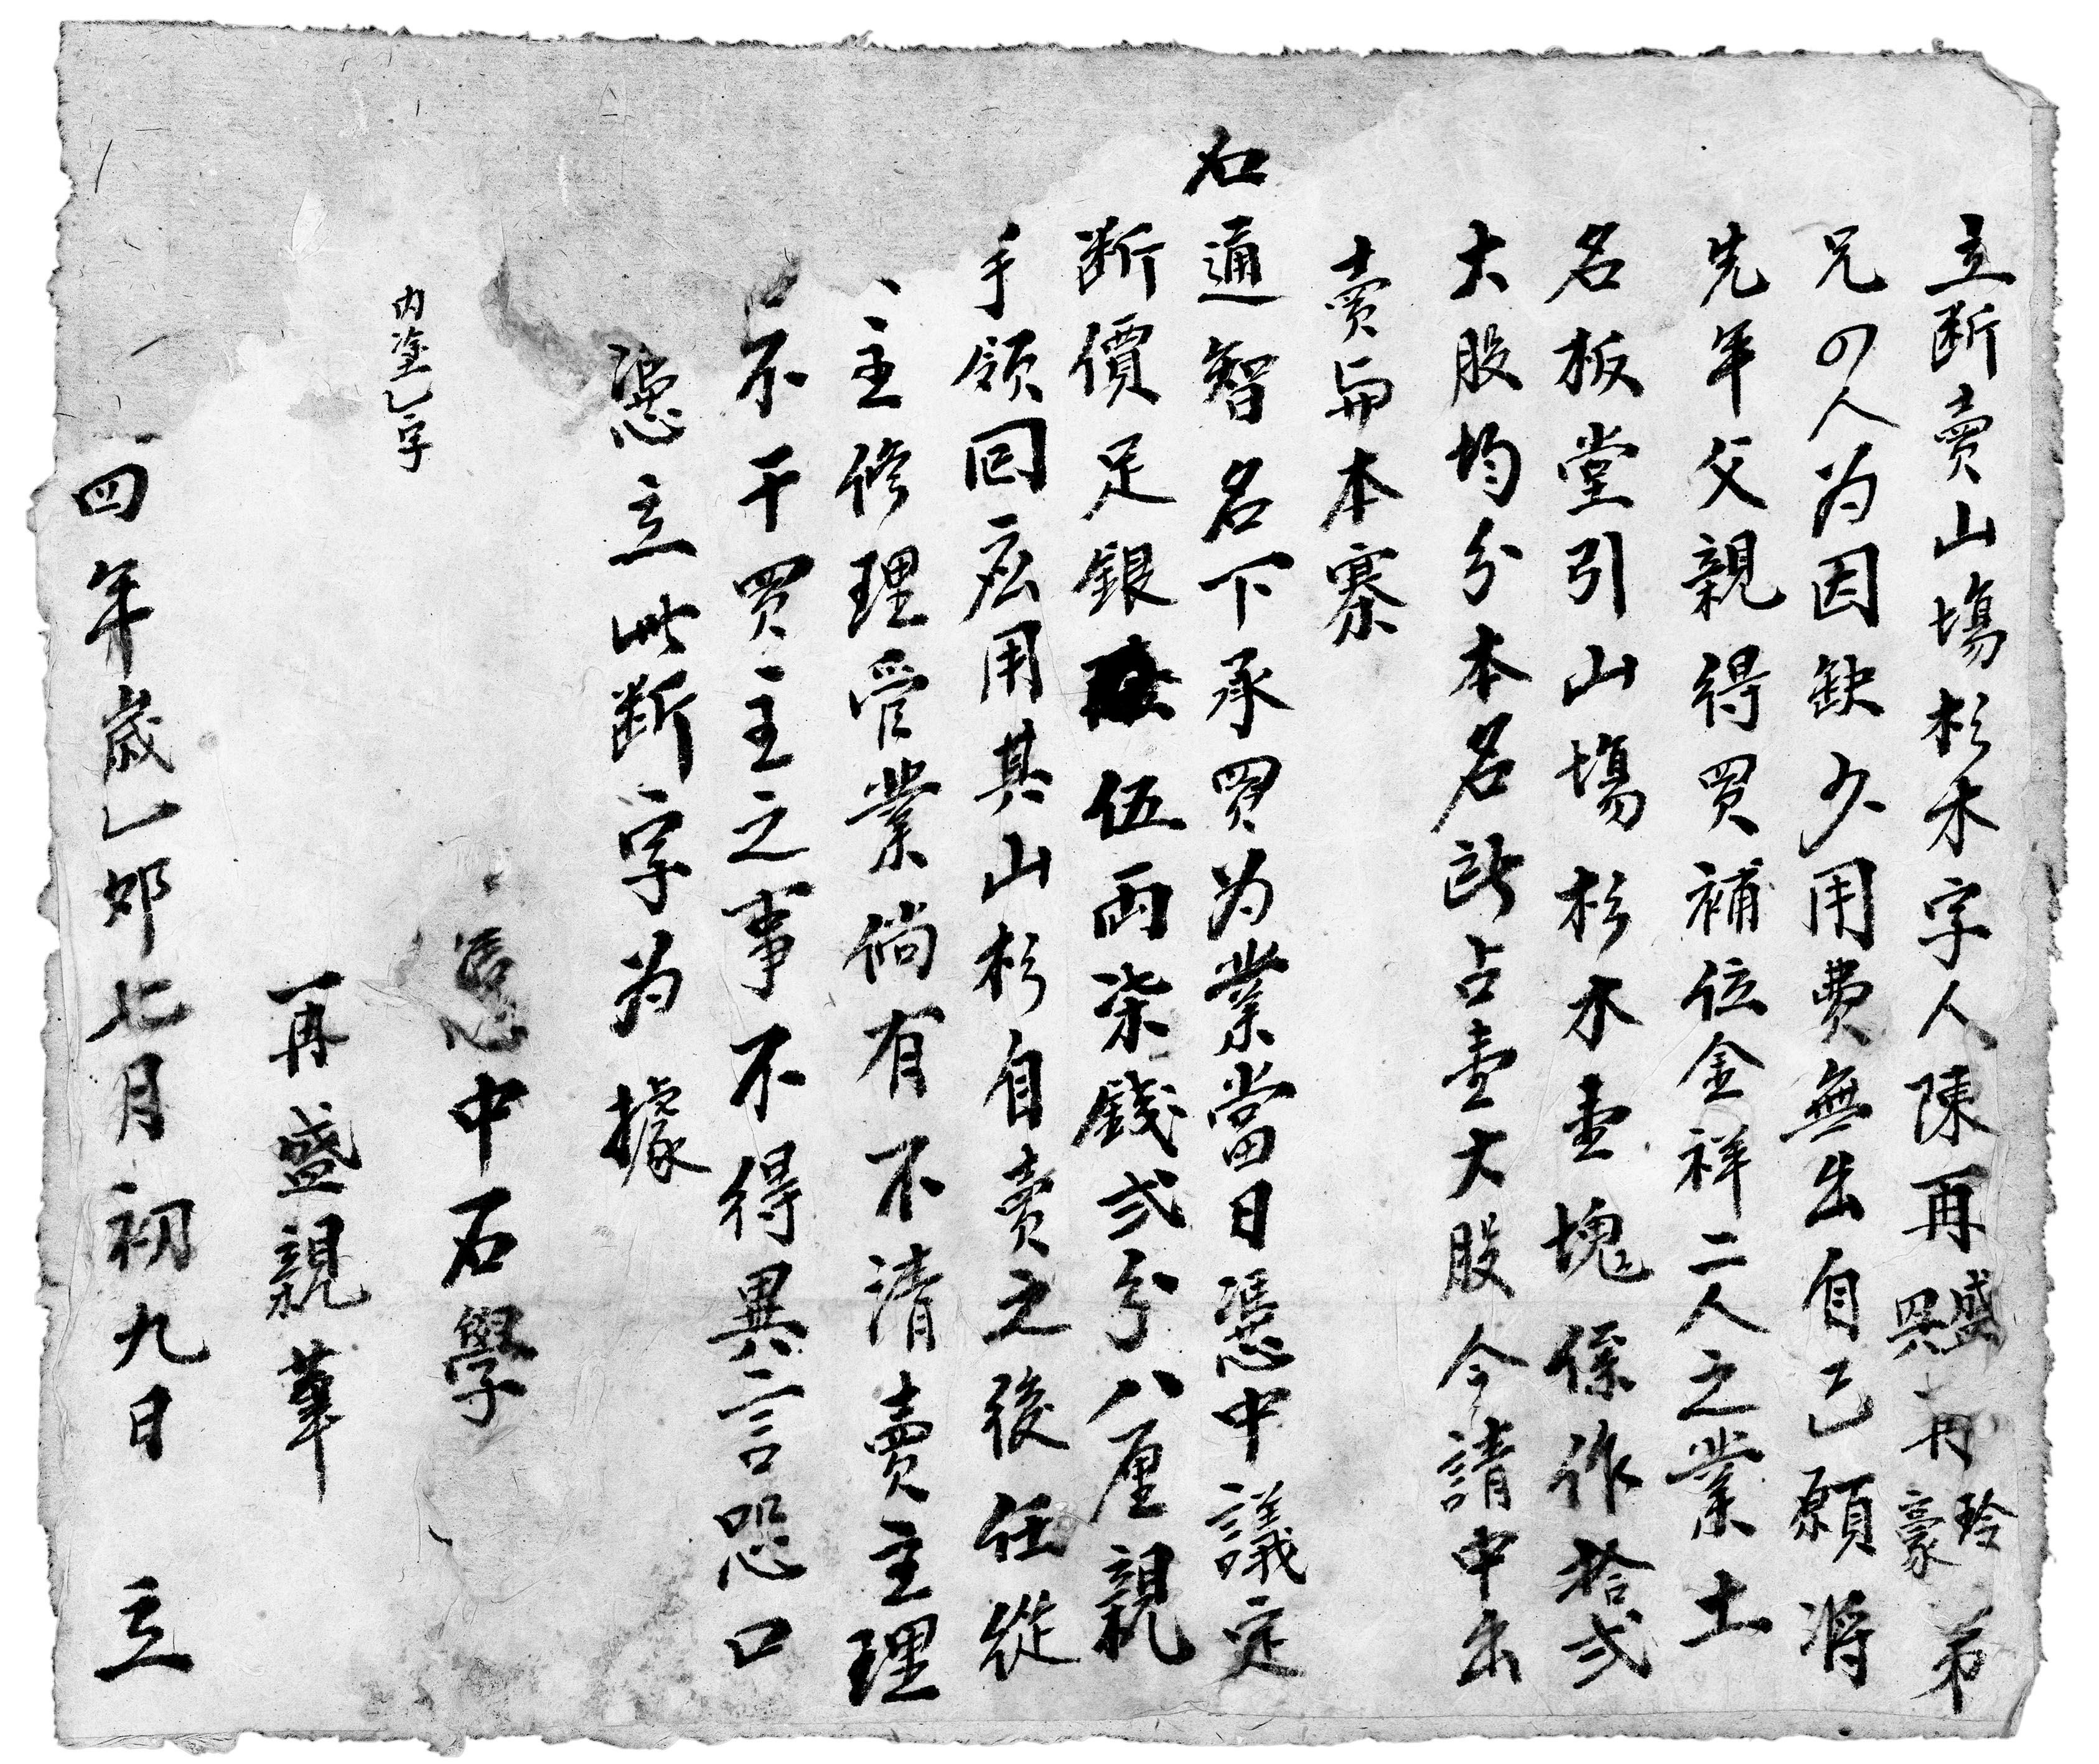 立断賣山塲杉木字人陳再盛興再玲豪弟
兄四人为因缺少用費無出自己願將
先年父親得買補位金祥二人之業土
名板堂引山塲杉木壹塊係作拾弍
大股均分本名所占壹大股今請中出
賣與本寨
石通智名下承買为業當日憑中議定
断價足銀伍両柒錢弍分八厘親
手領回應用其山杉自賣之後任從
主修理管業倘有不清賣主理
不干買主之事不得異言恐口
憑立此断字为據
内塗乙字
憑中石學
再盛親筆
四年歲乙卯七月初九日立